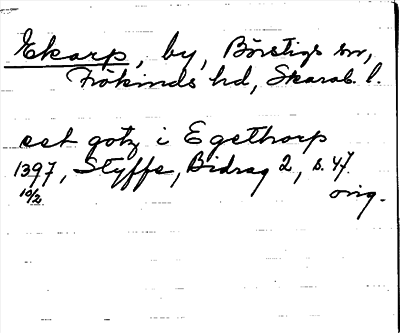 Ekarp, by, Börstigs sn,
Frökinds hd, Skarab. l.
est gotz i Egethorp
1397, Styffe, Bidrag 2, s. 47.
10/2 orig.